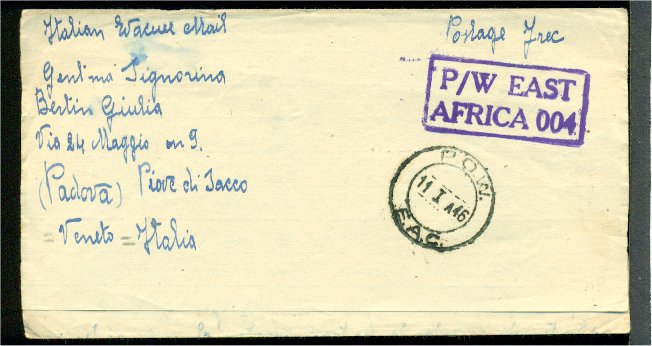 Italian Evacuee Mail
Postage Free
Gent.ma Signorina
Bertin Giulia
Via 24 Maggio n 9.
(Padova) Piove di Sacco
= Veneto = Italia
P/W EAST
AFRICA 004
P.O.W.
11 I A46
E.A.C.